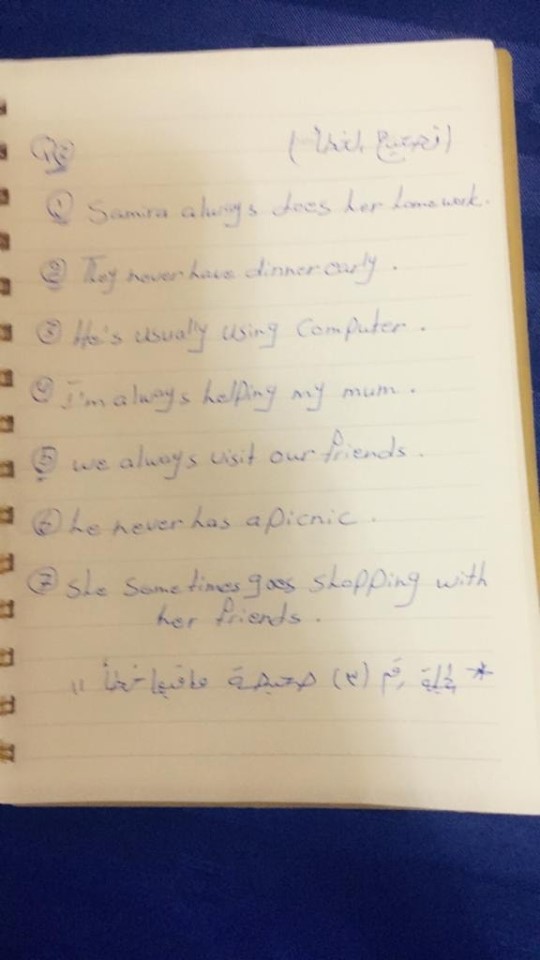 (تصحيح الخطأ)
① Samira always does her homework.
② They never have dinner early.
③ He's usually using Computer.
④ I'm always helping my mum.
⑤ we always visit our friends.
⑥ he never has a picnic.
⑦ she sometimes goes shopping with
her friends.
* جملة رقم (٣) صحيحة مافيها خطأ "